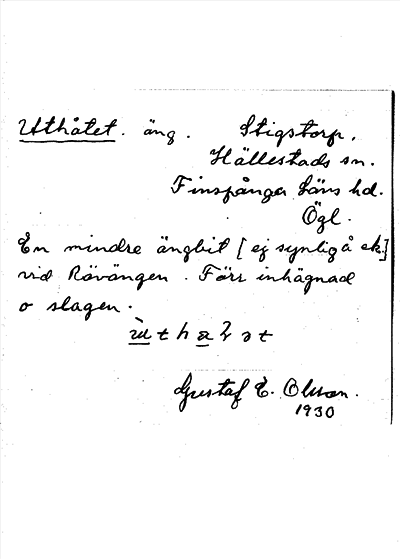 Uthåtet. äng. Stigstorp,
Hällestads sn.
Finspånga Läns hd.
Ögl.
En mindre ängbit [ej synlig å ek.]
vid Rävängen. Förr inhägnad
o slagen.
Gustaf E. Olsson.
1930